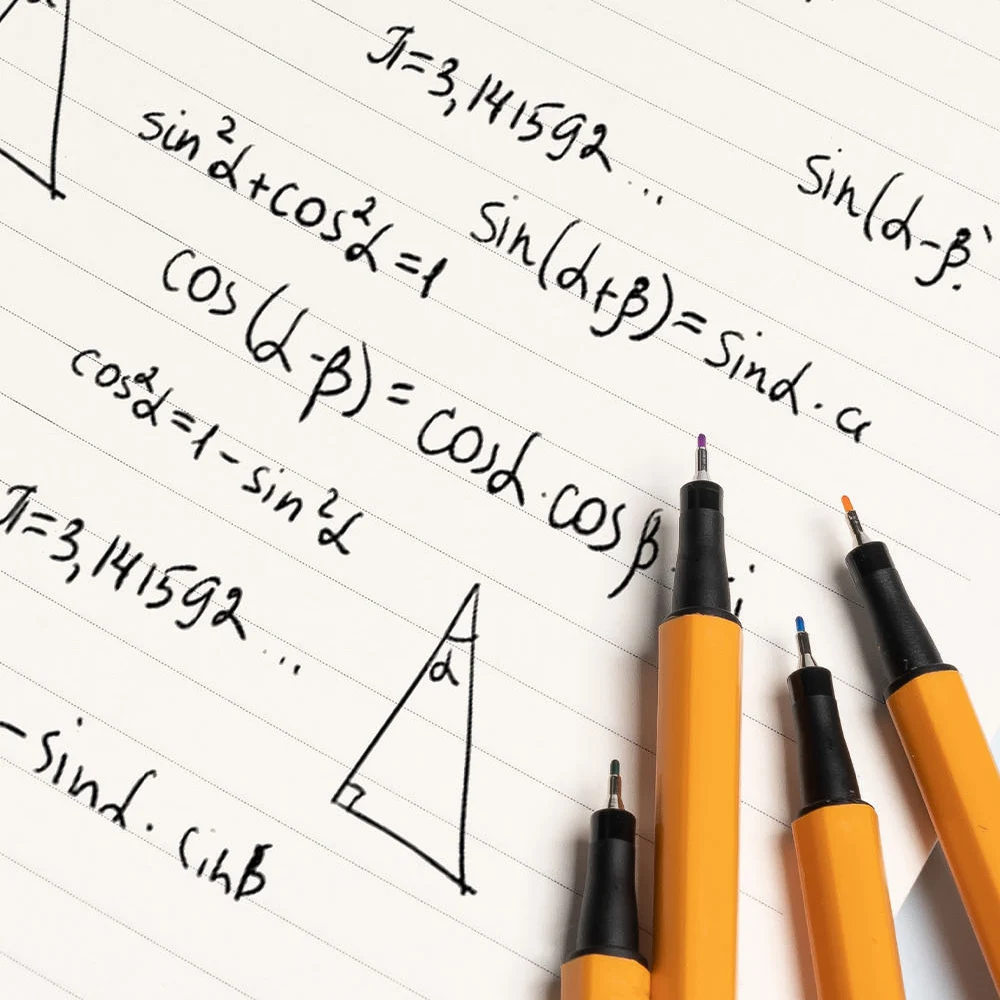 π=3,141592...
sin²α+cos²α=1
sin(α-β
sin(α+β)=sinα·
cos(α-β)=cosα·cosβ
cos²α=1-sin²α
π=3,141592...
α
-sinα·sinβ